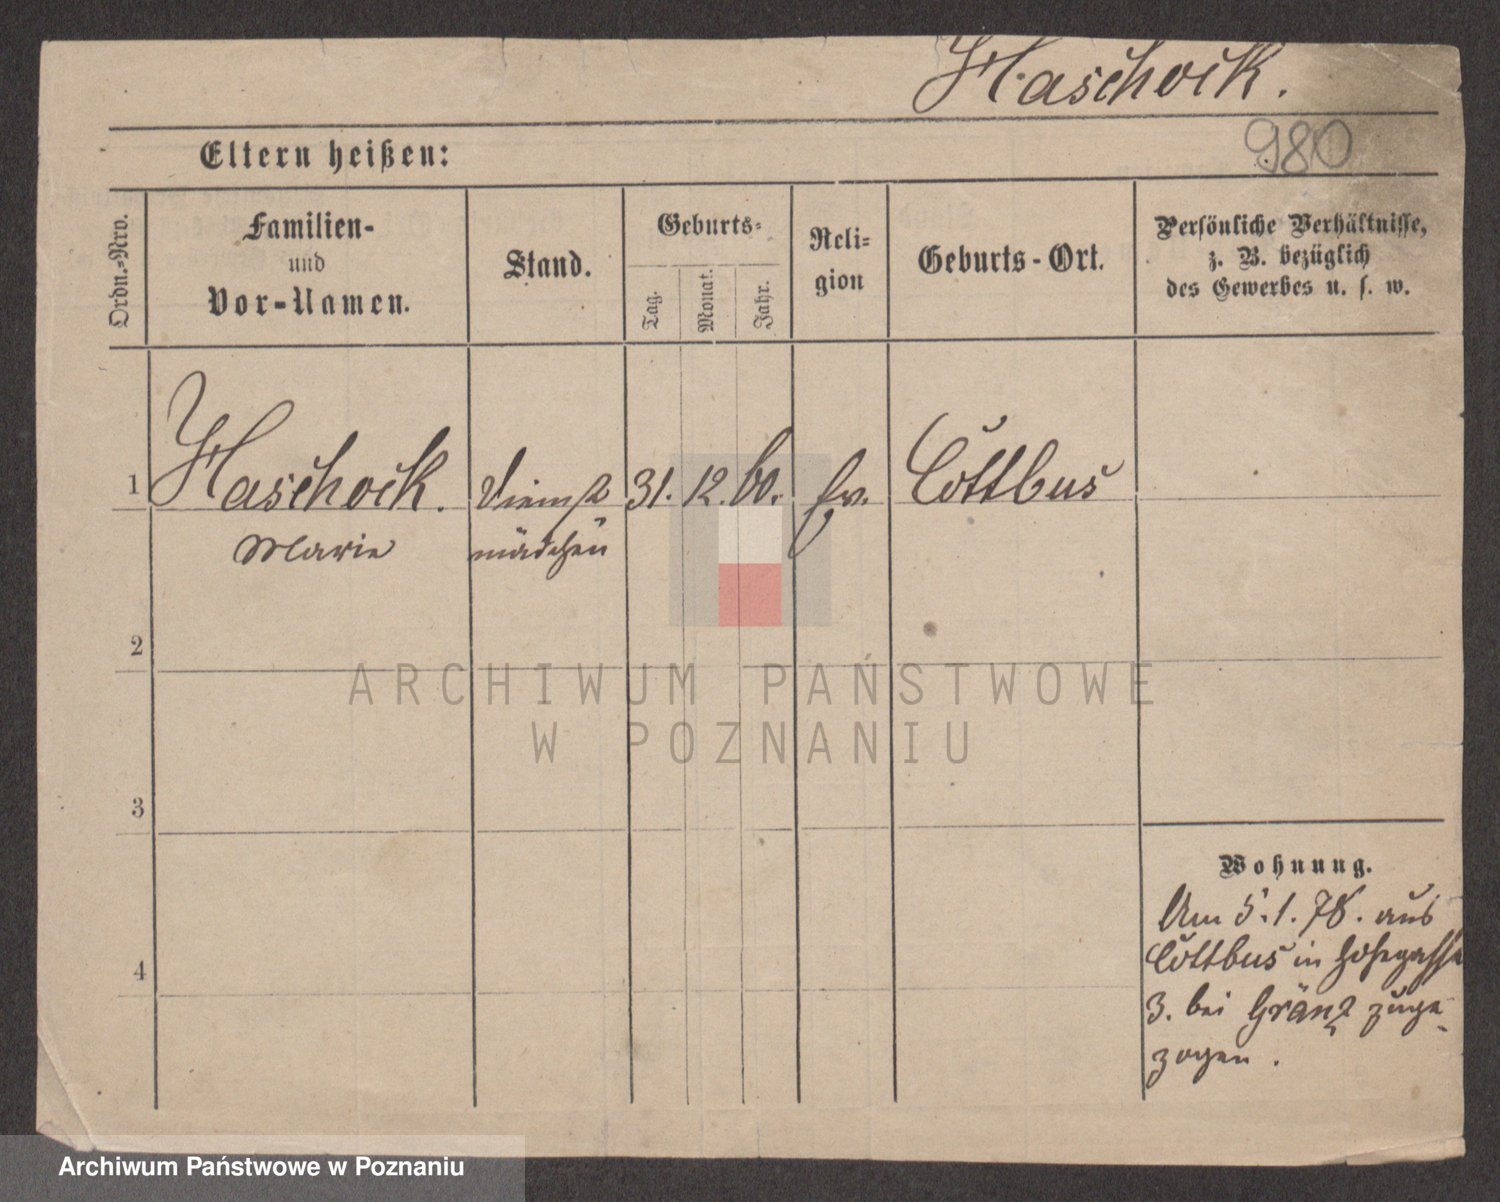 Haschock.
980
Eltern heißen:
Ordn.-Nro.
Familien-
und
Vor-Namen.
Stand.
Geburts-
Tag.
Monat.
Jahr.
Reli-
gion
Geburts-Ort.
Persönliche Verhältnisse,
z. B. bezüglich
des Gewerbes u. s. w.
1 Haschock. Dienst 31. 12. 60. ev. Cottbus
Marie mädchen
2
ARCHIWUM PAŃSTWOWE
W POZNANIU
3
Wohnung.
Am 5.1.78. aus
Cottbus in Hohegasse
3. bei Gränz zuge-
zogen.
4
Archiwum Państwowe w Poznaniu